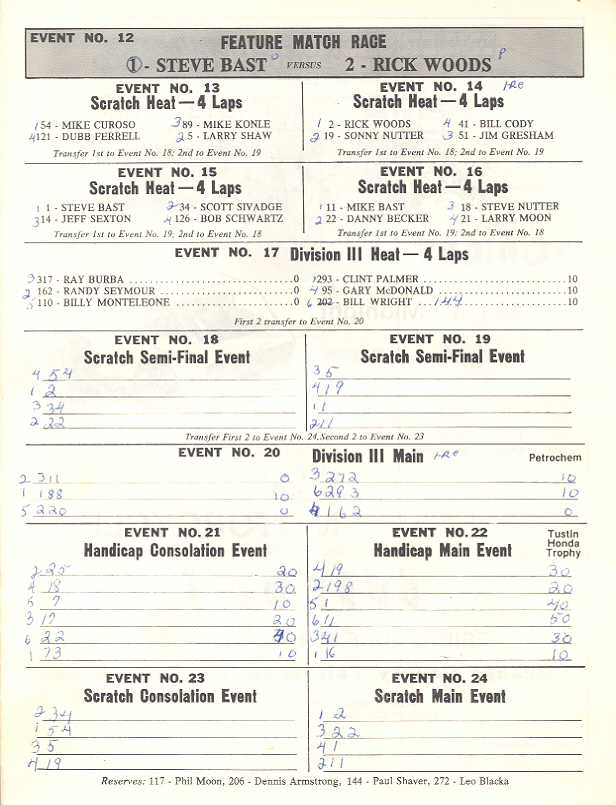 EVENT NO. 12
FEATURE MATCH RACE
1 - STEVE BAST 0 VERSUS 2 - RICK WOODS P
EVENT NO. 13
Scratch Heat — 4 Laps
1 54 - MIKE CUROSO 3 89 - MIKE KONLE
4 121 - DUBB FERRELL 2 5 - LARRY SHAW
Transfer 1st to Event No. 18; 2nd to Event No. 19
EVENT NO. 14
Scratch Heat — 4 Laps
1 2 - RICK WOODS 4 41 - BILL CODY
2 19 - SONNY NUTTER 3 51 - JIM GRESHAM
Transfer 1st to Event No. 18; 2nd to Event No. 19
EVENT NO. 15
Scratch Heat — 4 Laps
1 1 - STEVE BAST 2 34 - SCOTT SIVADGE
3 14 - JEFF SEXTON 4 126 - BOB SCHWARTZ
Transfer 1st to Event No. 19; 2nd to Event No. 18
EVENT NO. 16
Scratch Heat — 4 Laps
1 11 - MIKE BAST 3 18 - STEVE NUTTER
2 22 - DANNY BECKER 4 21 - LARRY MOON
Transfer 1st to Event No. 19; 2nd to Event No. 18
EVENT NO. 17 Division III Heat — 4 Laps
3 317 - RAY BURBA ..........0 1 293 - CLINT PALMER ..........10
2 162 - RANDY SEYMOUR ..........0 4 95 - GARY McDONALD ..........10
5 110 - BILLY MONTELEONE ..........0 6 202 - BILL WRIGHT 144 ..........10
First 2 transfer to Event No. 20
EVENT NO. 18
Scratch Semi-Final Event
4 54
1 2
3 34
2 22
EVENT NO. 19
Scratch Semi-Final Event
3 5
4 19
1 1
2 11
Transfer First 2 to Event No. 24, Second 2 to Event No. 23
EVENT NO. 20 Division III Main Petrochem
2 311 0 3 272 10
1 188 10 6 293 10
5 220 0 4 162 0
EVENT NO. 21
Handicap Consolation Event
2 25 20
4 18 30
5 7 10
3 17 20
6 22 30
1 73 10
EVENT NO. 22
Handicap Main Event
Tustin
Honda
Trophy
4 19 30
2 198 20
5 1 40
6 11 50
3 41 30
1 16 10
EVENT NO. 23
Scratch Consolation Event
2 34
1 54
3 5
4 19
EVENT NO. 24
Scratch Main Event
1 2
3 22
4 1
2 11
Reserves: 117 - Phil Moon, 206 - Dennis Armstrong, 144 - Paul Shaver, 272 - Leo Blacka